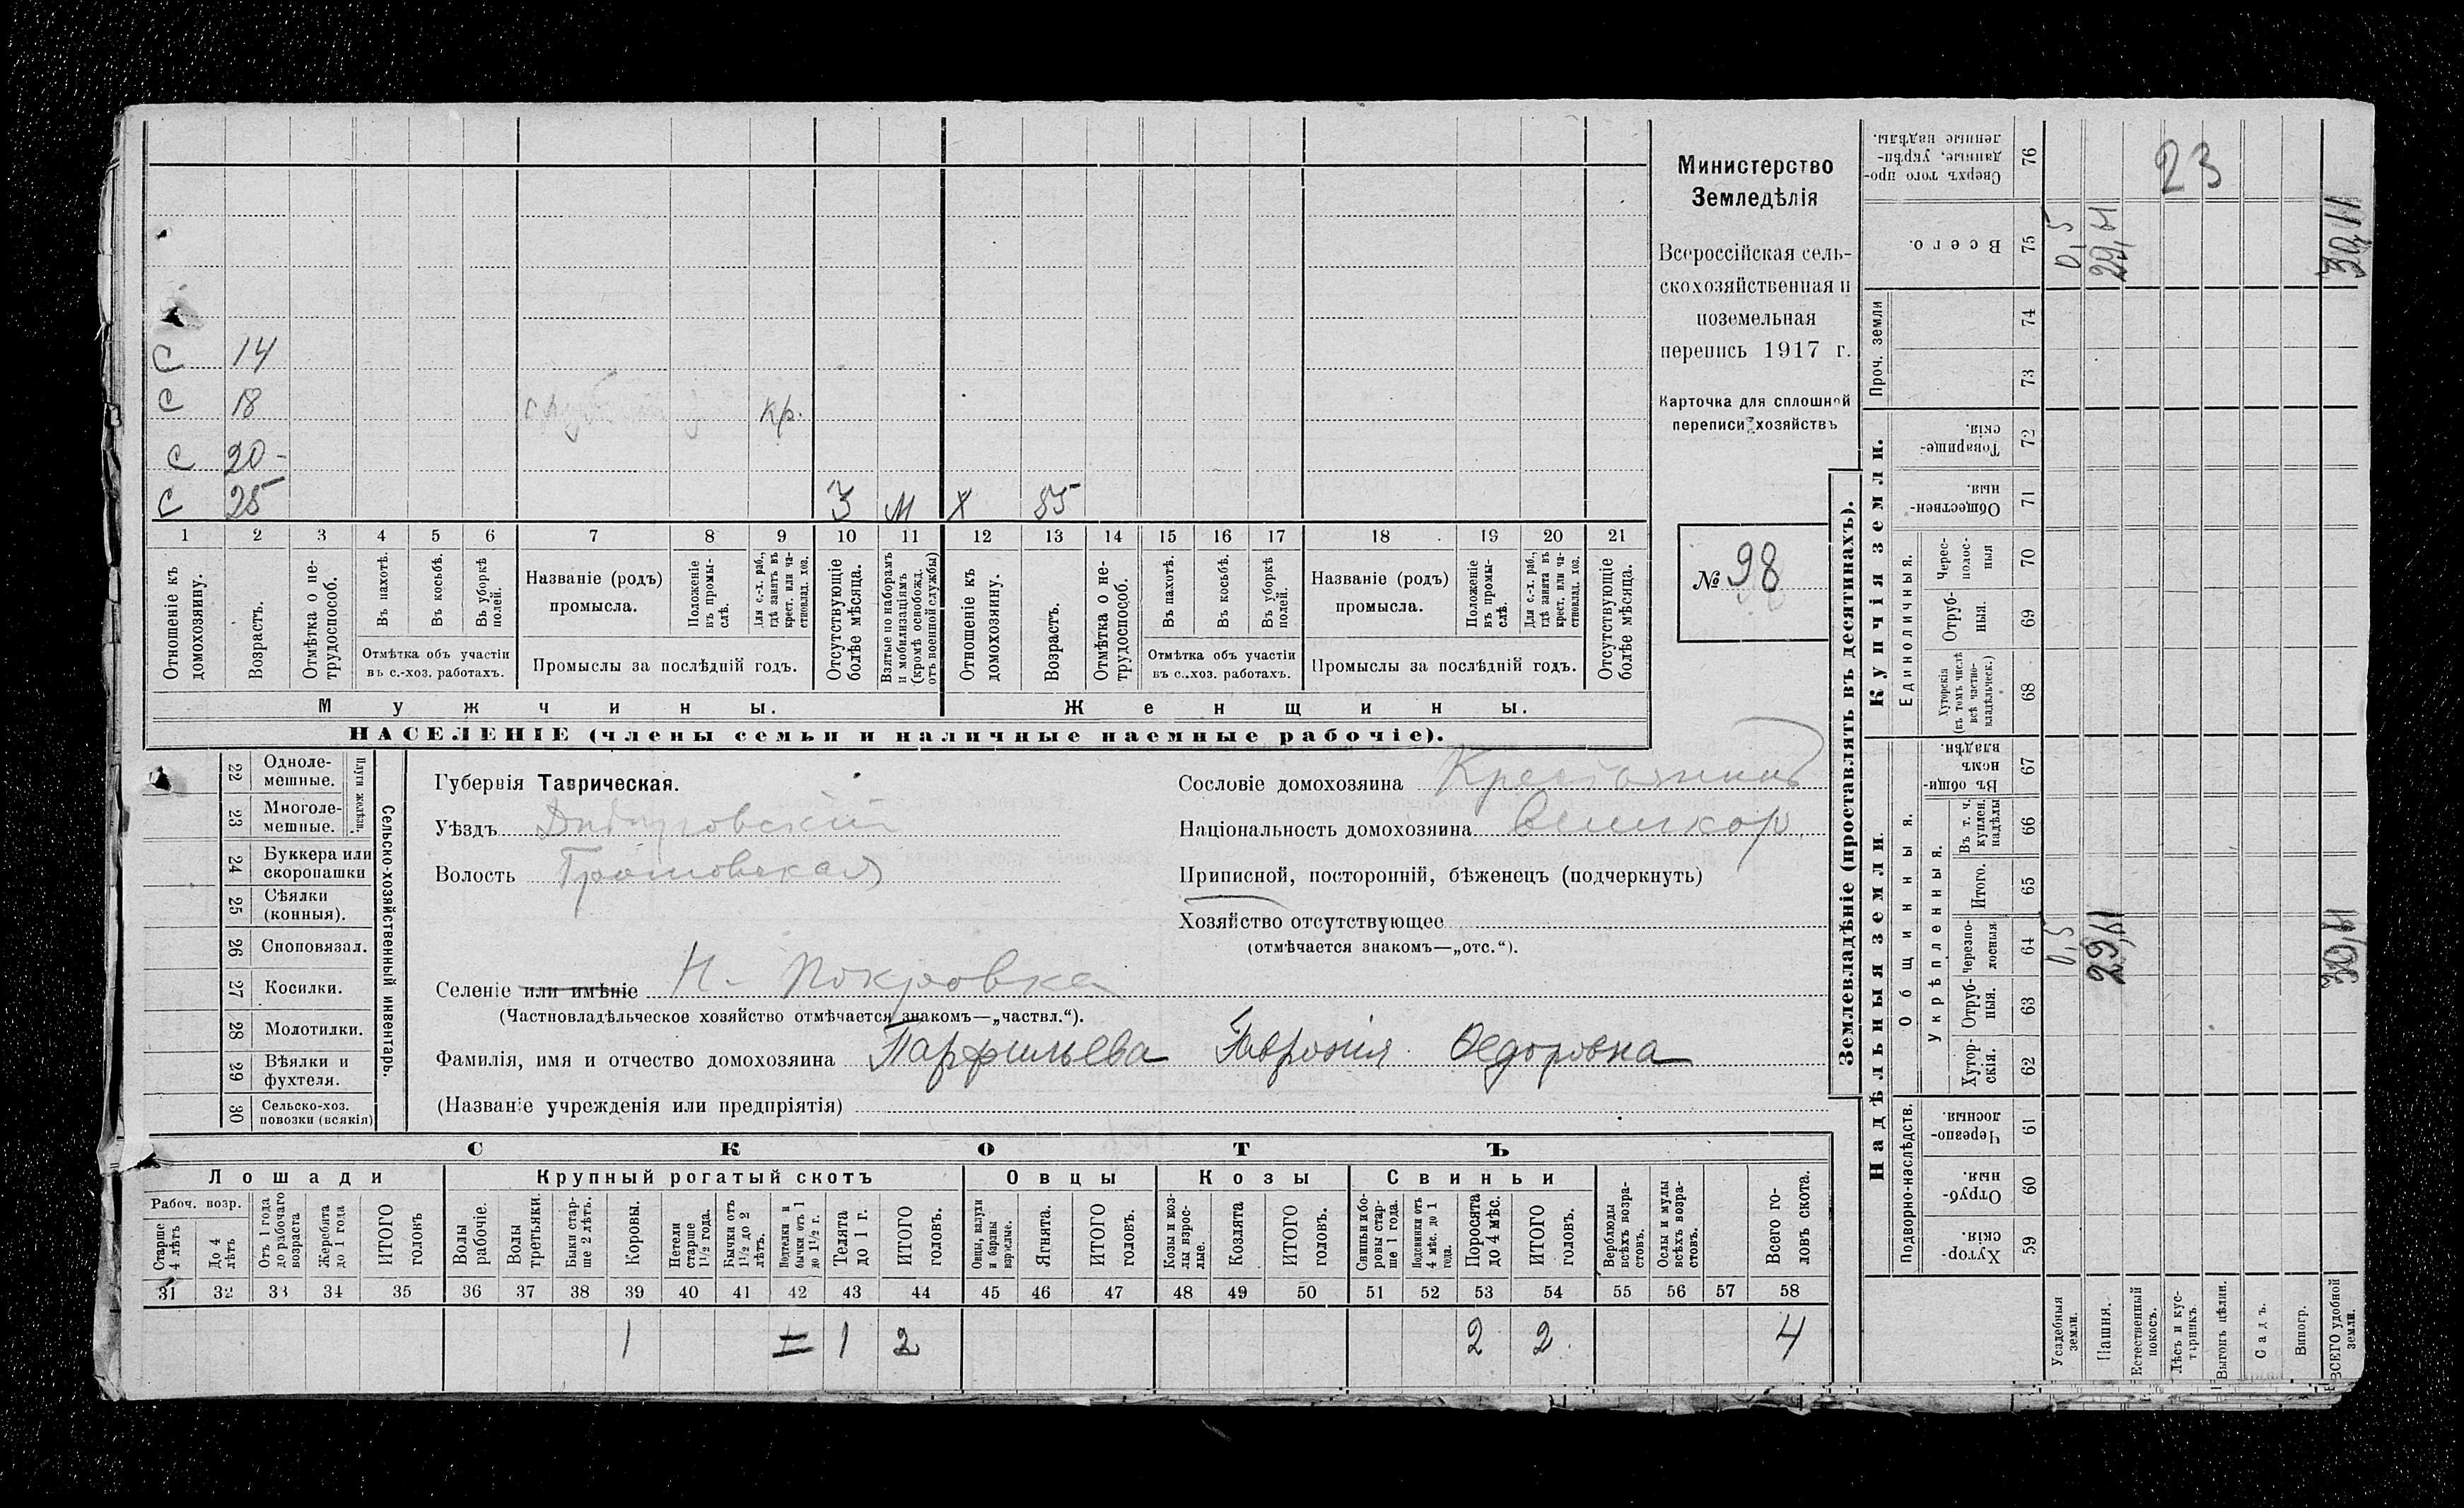 С 14
С 18 кр.
С 20
С 25 3 м Х 55
1 2 3 4 5 6 7 8 9 10 11 12 13 14 15 16 17 18 19 20 21
Отношеніе къ домохозяину.
Возрастъ.
Отмѣтка о нетрудоспособ.
Въ пахотѣ.
Въ косьбѣ.
Въ уборкѣ полей.
Отмѣтка объ участіи
въ с.-хоз. работахъ.
Названіе (родъ)
промысла.
Положеніе въ промыслѣ.
Для с.-х. раб., гдѣ занятъ въ крест. или частновлад. хоз.
Промыслы за послѣдній годъ.
Отсутствующіе болѣе мѣсяца.
Взятые по наборамъ и мобилизаціямъ (кромѣ освобожд. отъ военной службы)
Отношеніе къ домохозяину.
Возрастъ.
Отмѣтка о нетрудоспособ.
Въ пахотѣ.
Въ косьбѣ.
Въ уборкѣ полей.
Отмѣтка объ участіи
въ с.-хоз. работахъ.
Названіе (родъ)
промысла.
Положеніе въ промыслѣ.
Для с.-х. раб., гдѣ занята въ крест. или частновлад. хоз.
Промыслы за послѣдній годъ.
Отсутствующіе болѣе мѣсяца.
Мужчины. Женщины.
НАСЕЛЕНІЕ (члены семьи и наличные наемные рабочіе).
Министерство
Земледѣлія
Всероссійская сель-
скохозяйственная и
поземельная
перепись 1917 г.
Карточка для сплошной
переписи хозяйствъ
№ 98
22 Однолемешные.
23 Многолемешные.
Плуги желѣзн.
24 Буккера или скоропашки
25 Сѣялки (конныя).
26 Сноповязал.
27 Косилки.
28 Молотилки.
29 Вѣялки и фухтеля.
30 Сельско-хоз. повозки (всякія)
Сельско-хозяйственный инвентарь.
Губернія Таврическая.
Уѣздъ Днѣпровский
Волость
Селеніе или имѣніе Н. Покровка
(Частновладѣльческое хозяйство отмѣчается знакомъ—„частвл.“).
Фамилія, имя и отчество домохозяина Парфильева Федоровна
(Названіе учрежденія или предпріятія)
Сословіе домохозяина Крестьянинъ
Національность домохозяина великор.
Приписной, посторонній, бѣженецъ (подчеркнуть)
Хозяйство отсутствующее
(отмѣчается знакомъ—„отс.“).
СКОТЪ
Лошади Крупный рогатый скотъ Овцы Козы Свиньи
Рабоч. возр.
Старше 4 лѣтъ
До 4 лѣтъ
Отъ 1 года до рабочаго возраста
Жеребята до 1 года
ИТОГО головъ
Волы рабочіе.
Волы третьяки.
Быки старше 2 лѣтъ.
Коровы.
Нетели старше 1½ года.
Бычки отъ 1½ до 2 лѣтъ.
Подтелки и бычки отъ 1 до 1½ г.
Телята до 1 г.
ИТОГО головъ.
Овцы, валухи и бараны взрослые.
Ягнята.
ИТОГО головъ.
Козы и козлы взрослые.
Козлята
ИТОГО головъ.
Свиньи и боровы старше 1 года.
Подсвинки отъ 4 мѣс. до 1 года.
Поросята до 4 мѣс.
ИТОГО головъ.
Верблюды всѣхъ возрастовъ.
Ослы и мулы всѣхъ возрастовъ.
Всего головъ скота.
31 32 33 34 35 36 37 38 39 40 41 42 43 44 45 46 47 48 49 50 51 52 53 54 55 56 57 58
1 1 2 2 2 4
Землевладѣніе (проставлять въ десятинахъ).
Надѣльныя земли.
Купчія земли.
Проч. земли
Подворно-наслѣдств.
Общинныя.
Укрѣпленныя.
Единоличныя.
59 Хуторскія.
60 Отрубныя.
61 Черезполосныя
62 Хуторскія.
63 Отрубныя.
64 Черезполосныя
65 Итого.
66 Въ т. ч. куплен. надѣлы
67 Въ общинномъ владѣн.
68 Хуторскія (въ томъ числѣ всѣ частновладѣльческ.)
69 Отрубныя.
70 Чересполосныя
71 Общественныя.
72 Товарищескія.
73
74
75 Всего.
76 Сверхъ того проданные, укрѣпленные надѣлы.
Усадебныя земли. 0,5 0,5
Пашня. 29,11 29,11
Естественный покосъ.
Лѣсъ и кустарникъ.
Выгонъ цѣлин.
Садъ.
Виногр.
ВСЕГО удобной земли.
23